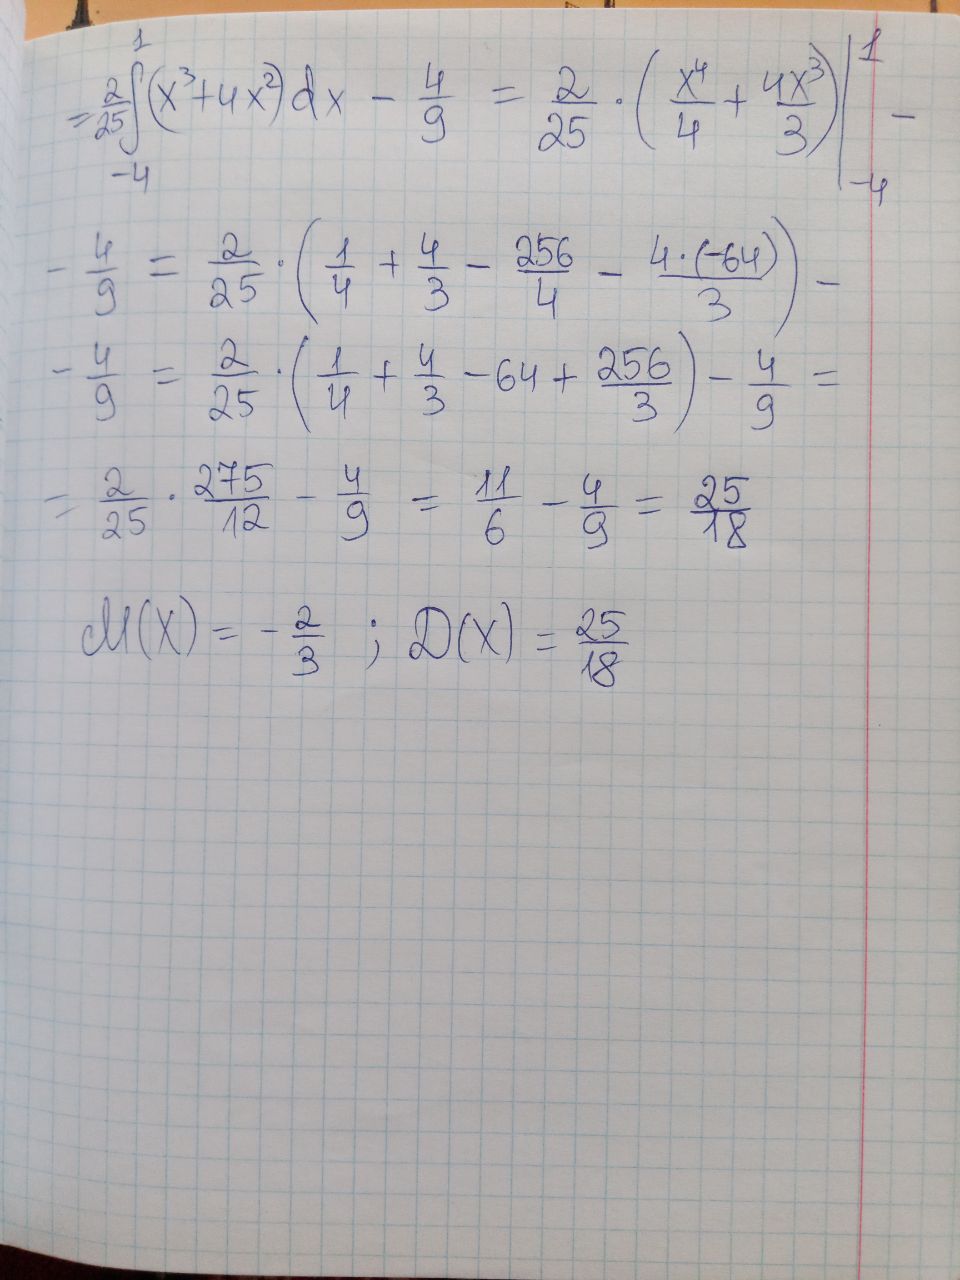 = 2/25 ∫_{-4}^{1} (x³+4x²)dx - 4/9 = 2/25 · (x⁴/4 + 4x³/3)|_{-4}^{1} -
- 4/9 = 2/25 · (1/4 + 4/3 - 256/4 - 4·(-64)/3) -
- 4/9 = 2/25 · (1/4 + 4/3 - 64 + 256/3) - 4/9 =
= 2/25 · 275/12 - 4/9 = 11/6 - 4/9 = 25/18
M(X) = - 2/3 ; D(X) = 25/18